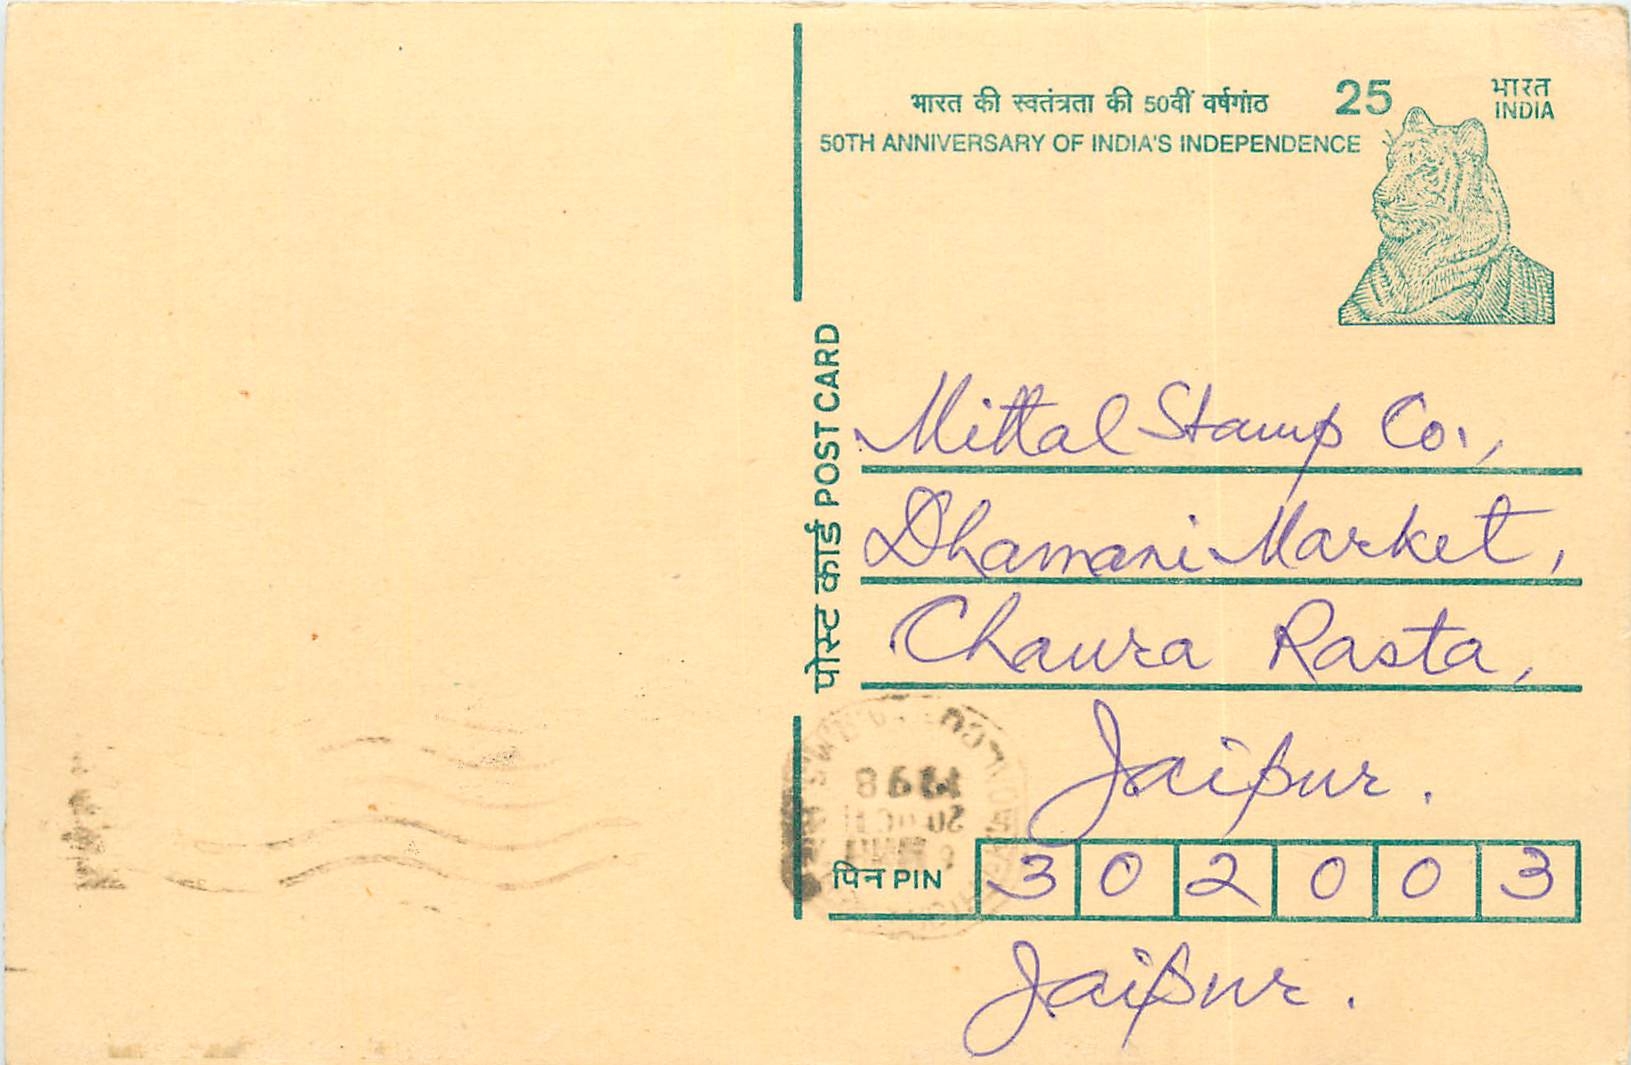 भारत की स्वतंत्रता की 50वीं वर्षगांठ
50TH ANNIVERSARY OF INDIA'S INDEPENDENCE
25
भारत
INDIA
पोस्ट कार्ड POST CARD
Mittal Stamp Co.,
Dhamani Market,
Chaura Rasta,
Jaipur.
पिन PIN 302003
Jaipur.